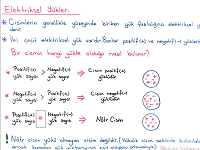 Elektriksel Yükler
* Cisimlerin genellikle yüzeyinde biriken yük fazlalığına elektriksel y
denir
* İki çeşit elektriksel yük vardır. Bunlar pozitif(+) ve negatif(-) yüklerdi
Bir cismin hangi yükte olduğu nasıl bulunur?
* Pozitif(+) yük sayısı > Negatif(-) yük sayısı → Cisim pozitif(+) yüklüdür
* Negatif(-) yük sayısı > Pozitif(+) yük sayısı → Cisim negatif(-) yüklüdür
* Pozitif(+) yük sayısı = Negatif(-) yük sayısı → Nötr Cisim
! Nötr cisim yükü olmayan cisim değildir.